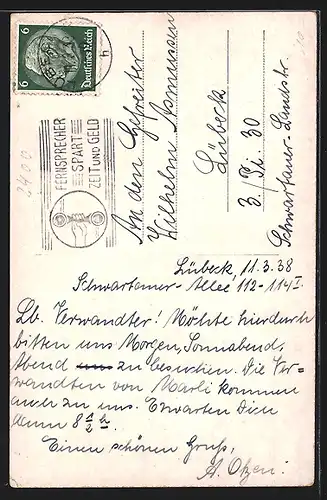 6
Deutsches Reich
6
LÜBECK
h
FERNSPRECHER
SPART
ZEIT UND GELD
2400
An den Gefreiter
Wilhelm Asmussen
Lübeck
3/Pi. 30
Schwartauer-Landstr.
Lübeck, 11.3.38
Schwartauer-Allee 112-114 I.
Lb. Verwandter! Möchte hierdurch
bitten uns Morgen, Sonnabend,
Abend zu besuchen. Die Ver=
wandten von Marli kommen
auch zu uns. Erwarten Dich
dann 8 1/2 h.
Einen schönen Gruß,
A. Otzen.